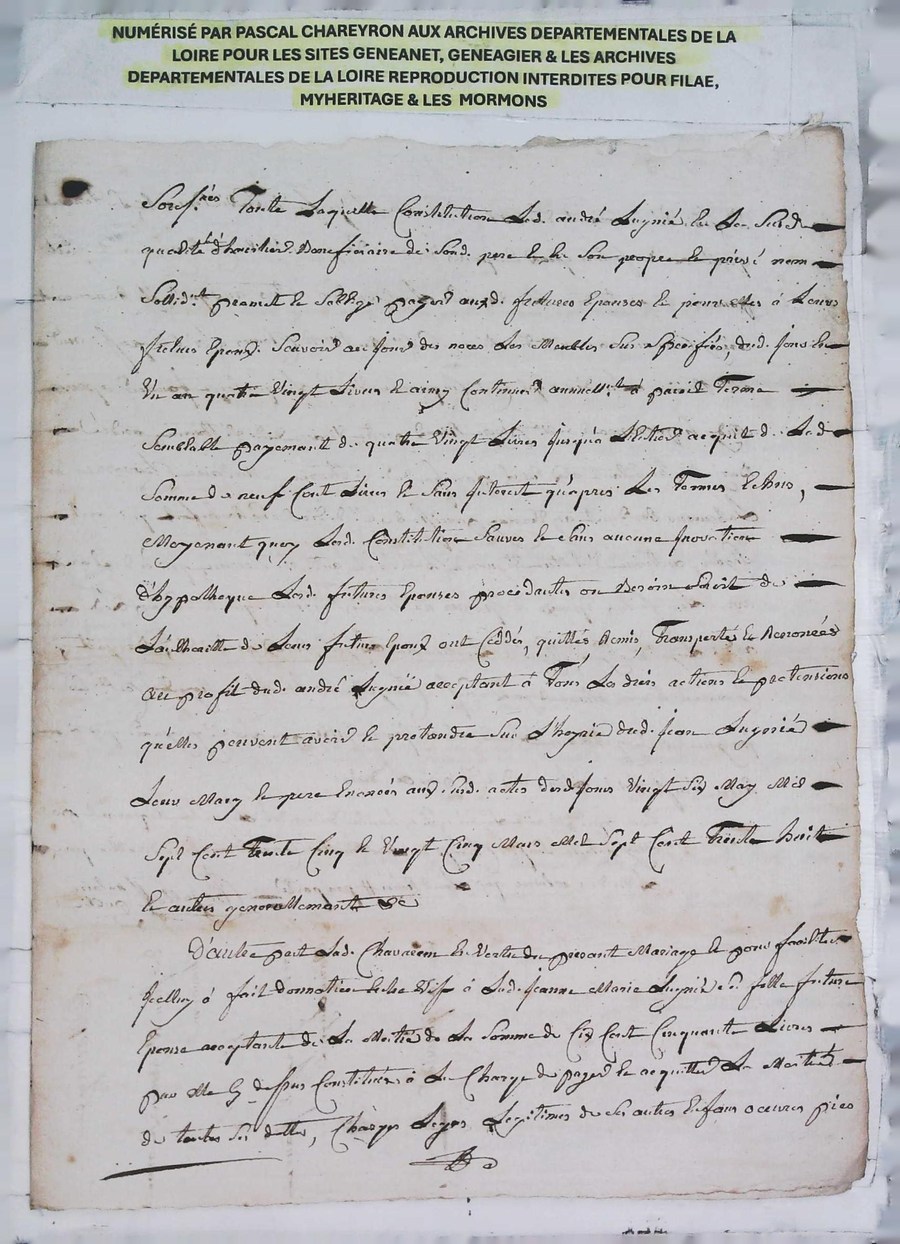 NUMÉRISÉ PAR PASCAL CHAREYRON AUX ARCHIVES DEPARTEMENTALES DE LA
LOIRE POUR LES SITES GENEANET, GENEAGIER & LES ARCHIVES
DEPARTEMENTALES DE LA LOIRE REPRODUCTION INTERDITES POUR FILAE,
MYHERITAGE & LES MORMONS
Toute Laquelle Constitution Led. andré Lugnié en La Susd.
qualité d'heritier Beneficiaire de Sond. pere et en Son propre et privé nom
Sollid.nt promet et S'oblige payer auxd. futures Epouses et pour elles à Leurs
futurs Epoux. Scavoir au jour des noces Les Meubles Sus Specifiés, dud. jour En
Un an quatre Vingt Livres et ainsy Continuer annuell.nt à pareil Terme
Semblable payemant de quatre Vingt Livres jusqu'a L'Entier acquit de Lad.
Somme de neuf Cent Livres et Sans Interest qu'apres Les Termes Echus,
Moyenant quoy Lad. Constitution Sauves et Sans aucune Inovation
d'hypotheque Lesd. futures Epouses procedantes ou Besoin Seroit de
L'authorité de Leurs futurs Epoux ont Ceddés, quittés Remis, Transporté et Renoncés
au profit dud. andré Lugnié acceptant à Tous Les droits actions et pretensions
qu'elles peuvent avoir et pretendre Sur L'hoyrie dud. Jean Lugnié
Leur Mary et pere Enoncés aux Susd. actes desd. jours Vingt Six May Mil
Sept Cent Trente Cinq et Vingt Cinq Mars Mil Sept Cent Trente huit
Et autres generallemant &c
D'autre part Lad. Chavaren En Vertu du presant Mariage et pour faciliter
Icelluy à fait donnation Entre Vifs à Lad. Jeanne Marie Lugnié Sa fille future
Epouse acceptante de La Moitié de La Somme de Cinquante Livres
par Elle Cy dessus Constituée à La Charge de payer et acquitter La Moitié
de toutes Ses dettes, Charges Legas Legitimes de Ses autres Enfans oeuvres pies